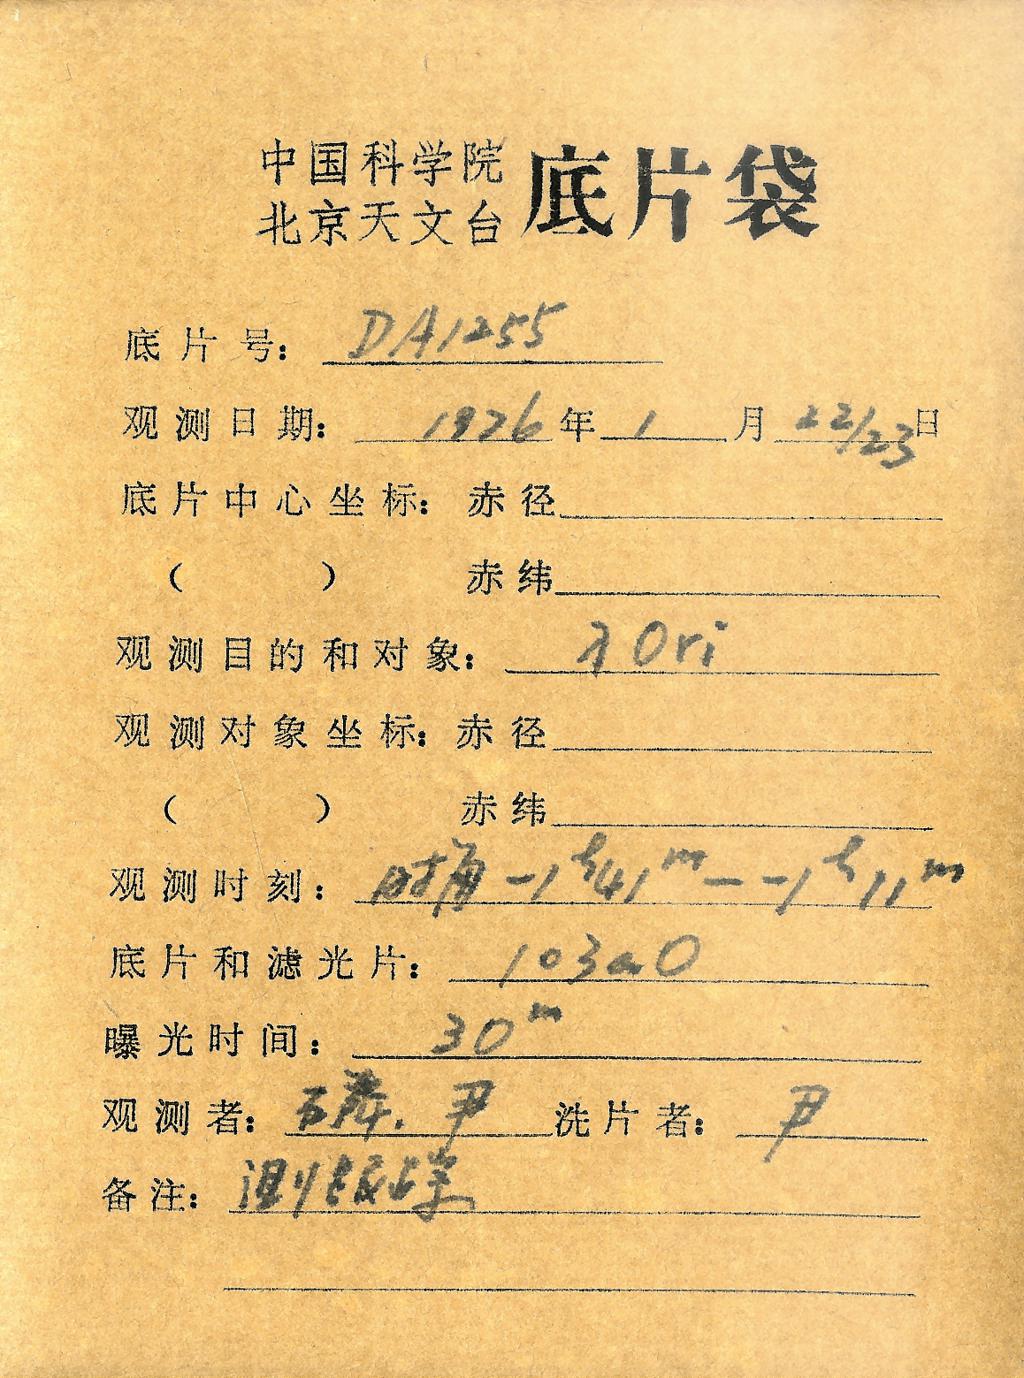 中国科学院
北京天文台
底片袋
底片号： DA1255
观测日期： 1976年 1 月 22/23日
底片中心坐标：赤径
（ ） 赤纬
观测目的和对象： λ Ori
观测对象坐标：赤径
（ ） 赤纬
观测时刻： 时角 -1ʰ41ᵐ — -1ʰ11ᵐ
底片和滤光片： 103aO
曝光时间： 30ᵐ
观测者： 尹 洗片者： 尹
备注： 测